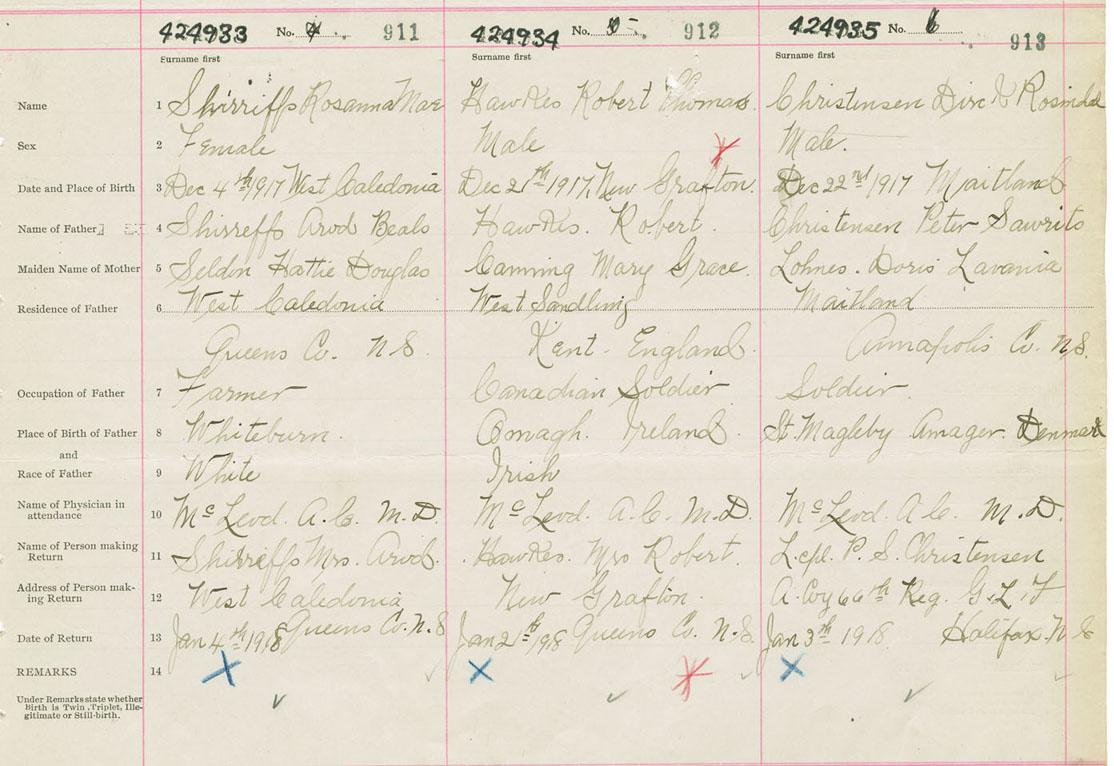 424933 No. 4 911 424934 No. 5 912 424935 No. 6 913
Surname first Surname first Surname first
Name 1 Shirriffs Rosanna Mae Hawkes Robert Thomas. Christensen Rosindal
Sex 2 Female Male Male.
Date and Place of Birth 3 Dec 4th 1917 West Caledonia Dec 21th 1917, New Grafton. Dec 22nd 1917 Maitland
Name of Father 4 Shirreffs Arod Beals Hawkes. Robert. Christensen Peter Sawrits
Maiden Name of Mother 5 Seldon Hattie Douglas Canning Mary Grace. Lohnes. Doris Lavania
Residence of Father 6 West Caledonia West Sandling Maitland
Queens Co. N S. Kent - England. Annapolis Co. N.S.
Occupation of Father 7 Farmer Canadian Soldier Soldier.
Place of Birth of Father 8 Whiteburn. Omagh. Ireland. St. Magleby Amager. Denmark
and
Race of Father 9 White Irish
Name of Physician in
attendance 10 McLeod. A. C. M.D. McLeod. A. C. M.D. McLeod. A. C. M.D.
Name of Person making
Return 11 Shirreffs Mrs. Arod. Hawkes. Mrs Robert. L. cpl. P. S. Christensen
Address of Person mak-
ing Return 12 West Caledonia New Grafton. A. Coy 66th Reg. G. L. F
Queens Co. N. S Queens Co. N.S. Halifax. N S
Date of Return 13 Jan 4th 1918 Jan 2th 1918 Jan 3th 1918
REMARKS 14
Under Remarks state whether
Birth is Twin, Triplet, Ille-
gitimate or Still-birth.